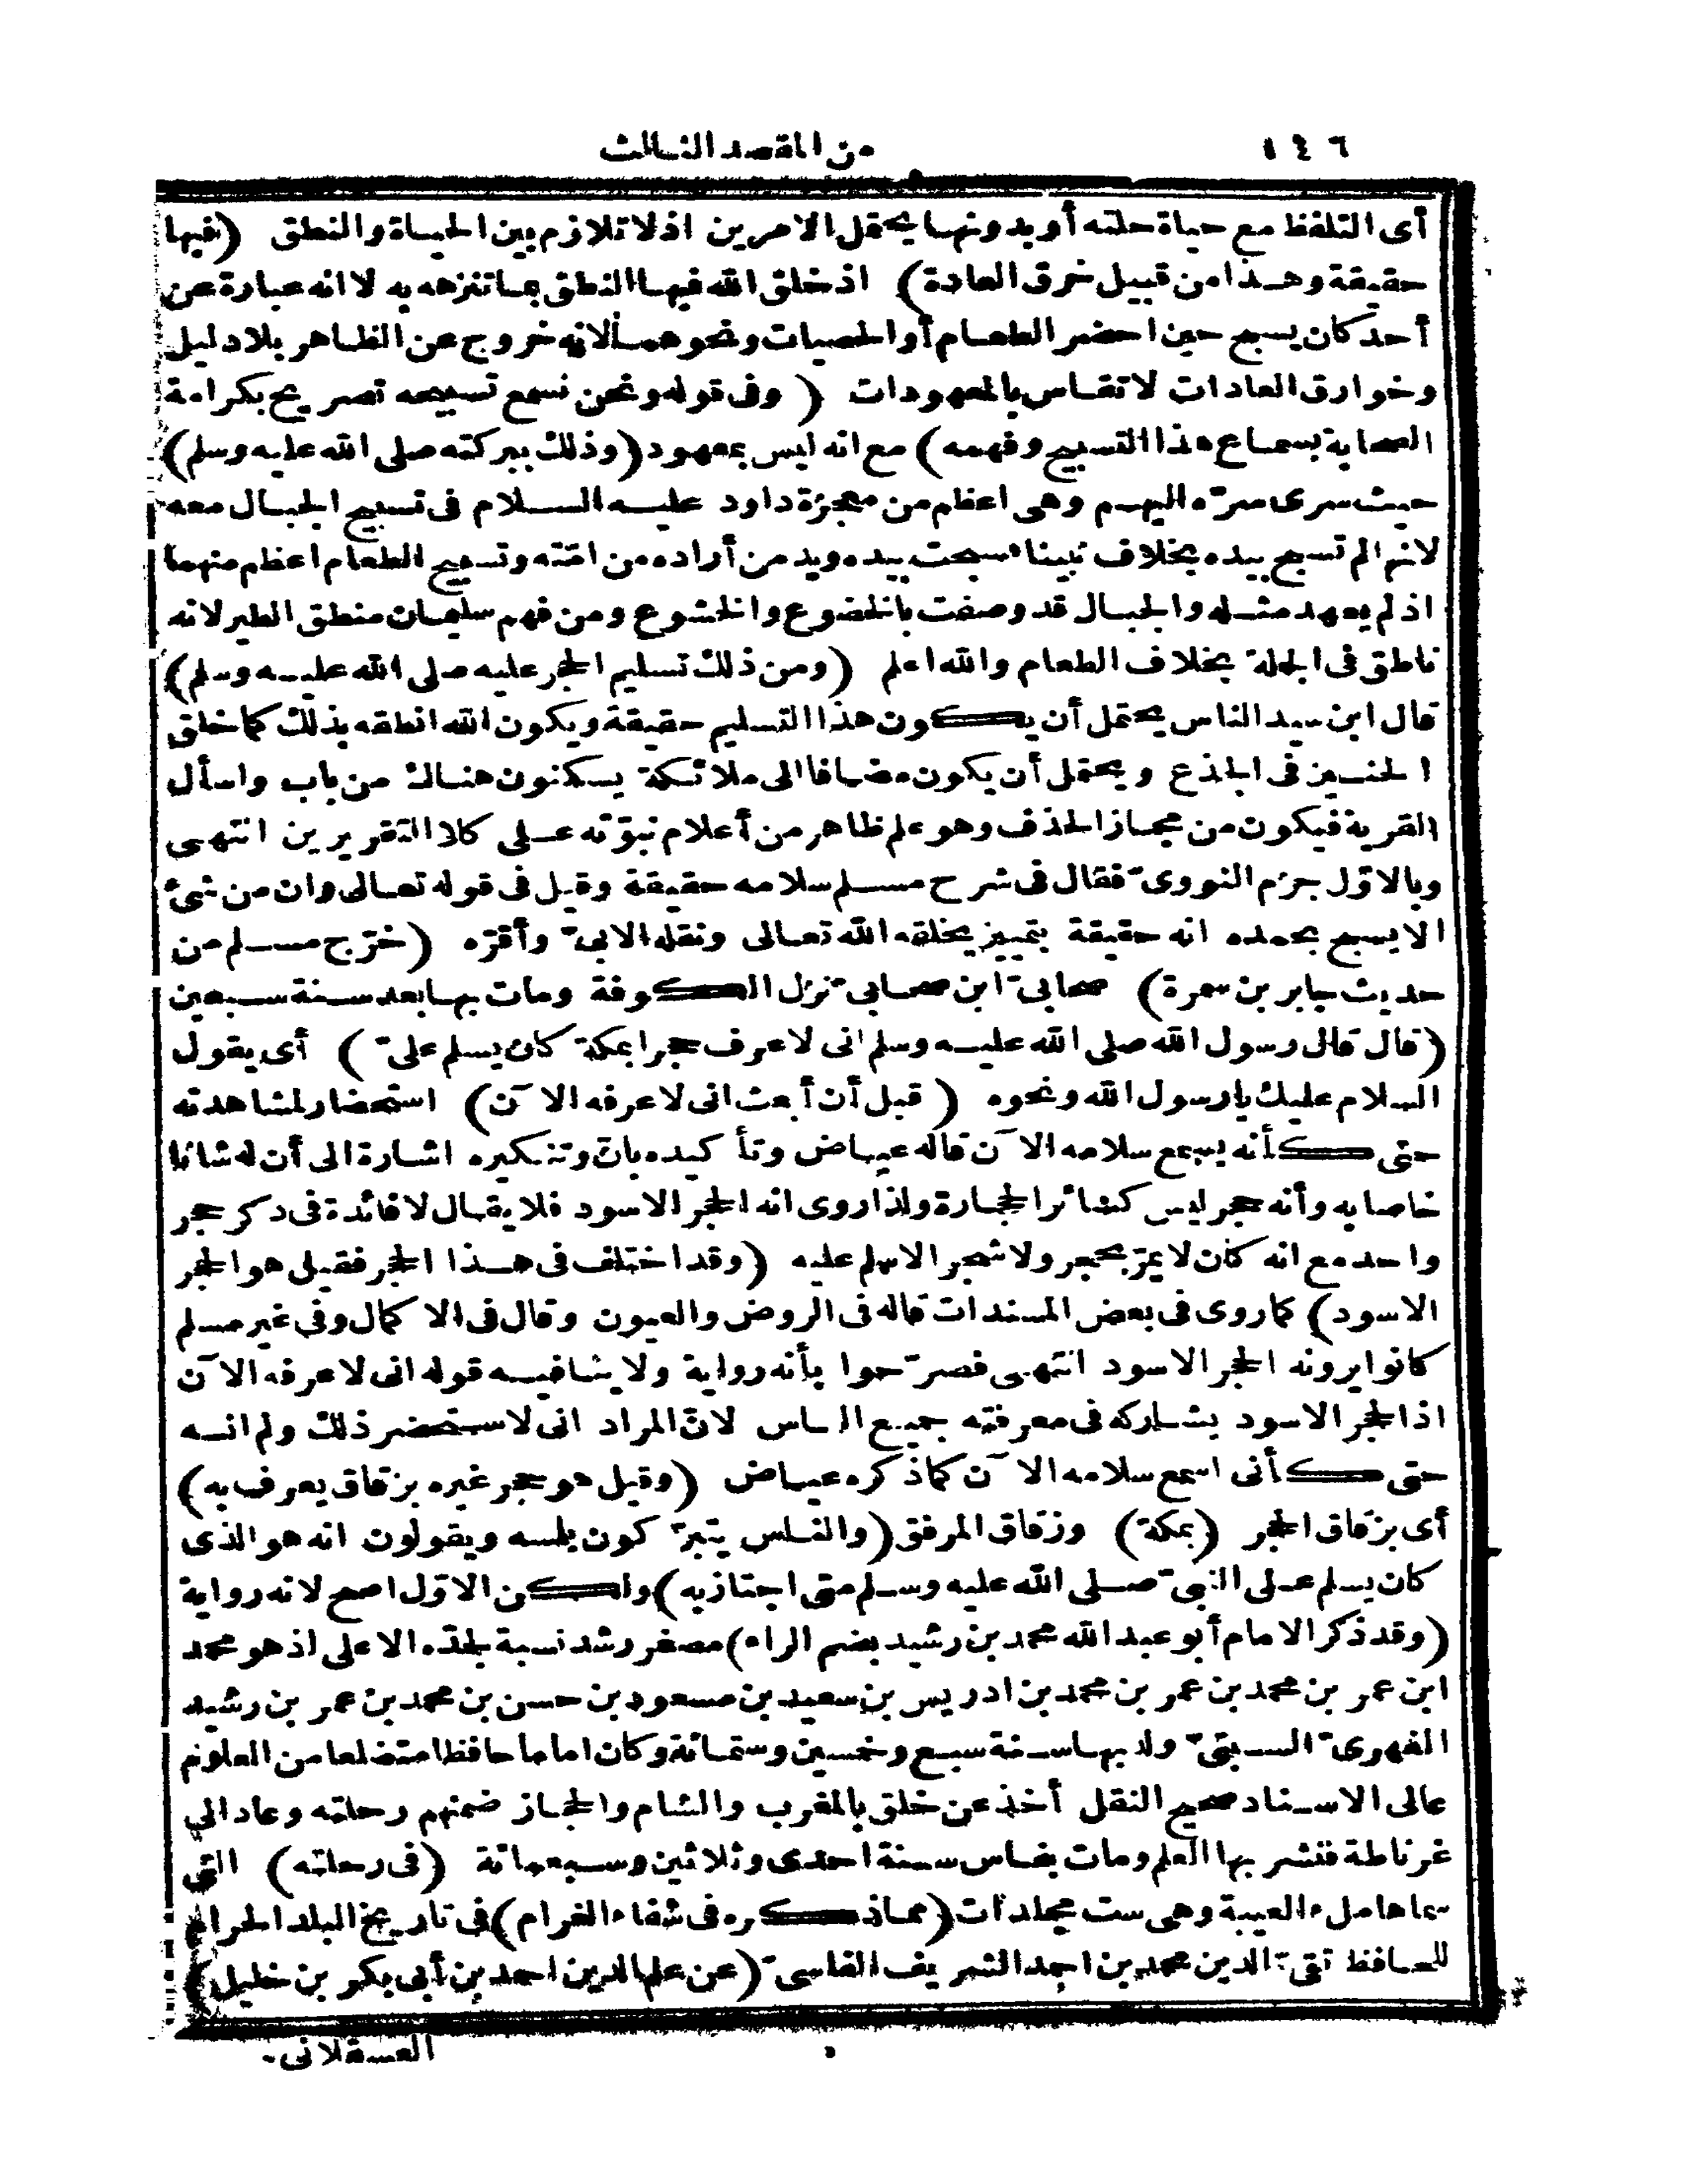 ١٤٦
من المقصد الثالث
أى التلفظ مع حياة حلته أو بدونها يحتمل الامرين اذ لا تلازم بين الحياة والنطق (فيها
حقيقة وهذا من قبيل خرق العادة) اذ خلق الله فيها النطق بما تنزهه به لا انه عبارة عن
أحد كان يسبح حين احضر الطعام أو الحصيات ونحوهما لانه خروج عن الظاهر بلا دليل
وخوارق العادات لا تقاس بالمعهودات (وفى قوله ونحن نسمع تسبيحه تصريح بكرامة
الصحابة بسماع هذا التسبيح وفهمه) مع انه ليس بمعهود (وذلك ببركته صلى الله عليه وسلم)
حيث سرى سرّه اليهم وهى اعظم من معجزة داود عليه السلام فى تسبيح الجبال معه
لانها لم تسبح بيده بخلاف نبينا سبحت بيده ويد من أراده من امّته وتسبيح الطعام اعظم منهما
اذ لم يعهد مثله والجبال قد وصفت بالخضوع والخشوع ومن فهم سليمان منطق الطير لانه
ناطق فى الجملة بخلاف الطعام والله اعلم (ومن ذلك تسليم الحجر عليه صلى الله عليه وسلم)
قال ابن سيد الناس يحتمل أن يكون هذا التسليم حقيقة ويكون الله انطقه بذلك كما خلق
الحنين فى الجذع ويحتمل أن يكون مضافا الى ملائكة يسكنون هناك من باب واسأل
القرية فيكون من مجاز الحذف وهو علم ظاهر من أعلام نبوّته على كلا التقريرين انتهى
وبالاوّل جزم النووىّ فقال فى شرح مسلم سلامه حقيقة وقيل فى قوله تعالى وان من شئ
الا يسبح بحمده انه حقيقة بتمييز يخلقه الله تعالى ونقله الابىّ وأقرّه (خرّج مسلم من
حديث جابر بن سمرة) صحابىّ ابن صحابىّ نزل الكوفة ومات بها بعد سنة سبعين
(قال قال رسول الله صلى الله عليه وسلم انى لاعرف حجرا بمكة كان يسلم علىّ) أى يقول
السلام عليك يا رسول الله ونحوه (قبل أن أبعث انى لاعرفه الآن) استحضار لمشاهدته
حتى كأنه يسمع سلامه الآن قاله عياض وتأكيده بانّ وتنكيره اشارة الى أن له شانا
خاصا به وأنه حجر ليس كسائر الحجارة ولذا روى انه الحجر الاسود فلا يقال لا فائدة فى ذكر حجر
واحد مع انه كان لا يمرّ بحجر ولا شجر الا سلم عليه (وقد اختلف فى هذا الحجر فقيل هو الحجر
الاسود) كما روى فى بعض المسندات قاله فى الروض والعيون وقال فى الاكمال وفى غير مسلم
كانوا يرونه الحجر الاسود انتهى فصرّحوا بأنه رواية ولا ينافيه قوله انى لاعرفه الآن
اذ الحجر الاسود يشاركه فى معرفته جميع الناس لانّ المراد انى لاستحضر ذلك ولم انسه
حتى كأنى اسمع سلامه الآن كما ذكره عياض (وقيل هو حجر غيره بزقاق يعرف به)
أى بزقاق الحجر (بمكة) وزقاق المرفق (والناس يتبرّكون بلمسه ويقولون انه هو الذى
كان يسلم على النبىّ صلى الله عليه وسلم متى اجتاز به) ولكن الاوّل اصح لانه رواية
(وقد ذكر الامام أبو عبد الله محمد بن رشيد بضم الراء) مصغر رشد نسبة لجدّه الاعلى اذ هو محمد
ابن عمر بن محمد بن عمر بن محمد بن ادريس بن سعيد بن مسعود بن حسن بن محمد بن عمر بن رشيد
الفهرىّ السبتىّ ولد بها سنة سبع وخمسين وستمائة وكان اماما حافظا متضلعا من العلوم
عالى الاسناد صحيح النقل أخذ عن خلق بالمغرب والشام والحجاز ضمنهم رحلته وعاد الى
غرناطة فنشر بها العلم ومات بفاس سنة احدى وثلاثين وسبعمائة (فى رحلته) التى
سماها ملء العيبة وهى ست مجلدات (مما ذكره فى شفاء الغرام) فى تاريخ البلد الحرام
للحافظ تقىّ الدين محمد بن احمد الشريف الفاسىّ (عن علم الدين احمد بن أبى بكر بن خليل)
العسقلانى